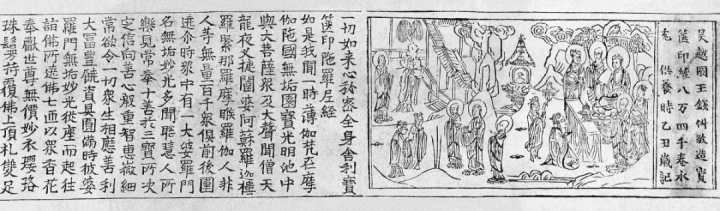 吳越國王錢俶敬造寶
篋印經八万四千卷永
充供養時乙丑歲記
一切如來心秘密全身舍利寶
篋印陀羅尼經
如是我聞一時薄伽梵在摩
伽陀國無垢園寶光明池中
與大菩薩衆及大聲聞僧天
龍夜叉揵闥婆阿蘇羅迦樓
羅緊那羅摩睺羅伽人非
人等無量百千衆俱前後圍
遶尒時衆中有一大婆羅門
名無垢妙光多聞聰慧人所
樂見常奉十善於三寶所决
定信向善心殷重智惠微細
常欲令一切衆生相應善利
大富豐饒資具圓滿時彼婆
羅門無垢妙光從座而起往
詣佛所遶佛七匝以衆香花
奉獻世尊無價妙衣瓔珞
珠鬘等持覆佛上頂礼雙足